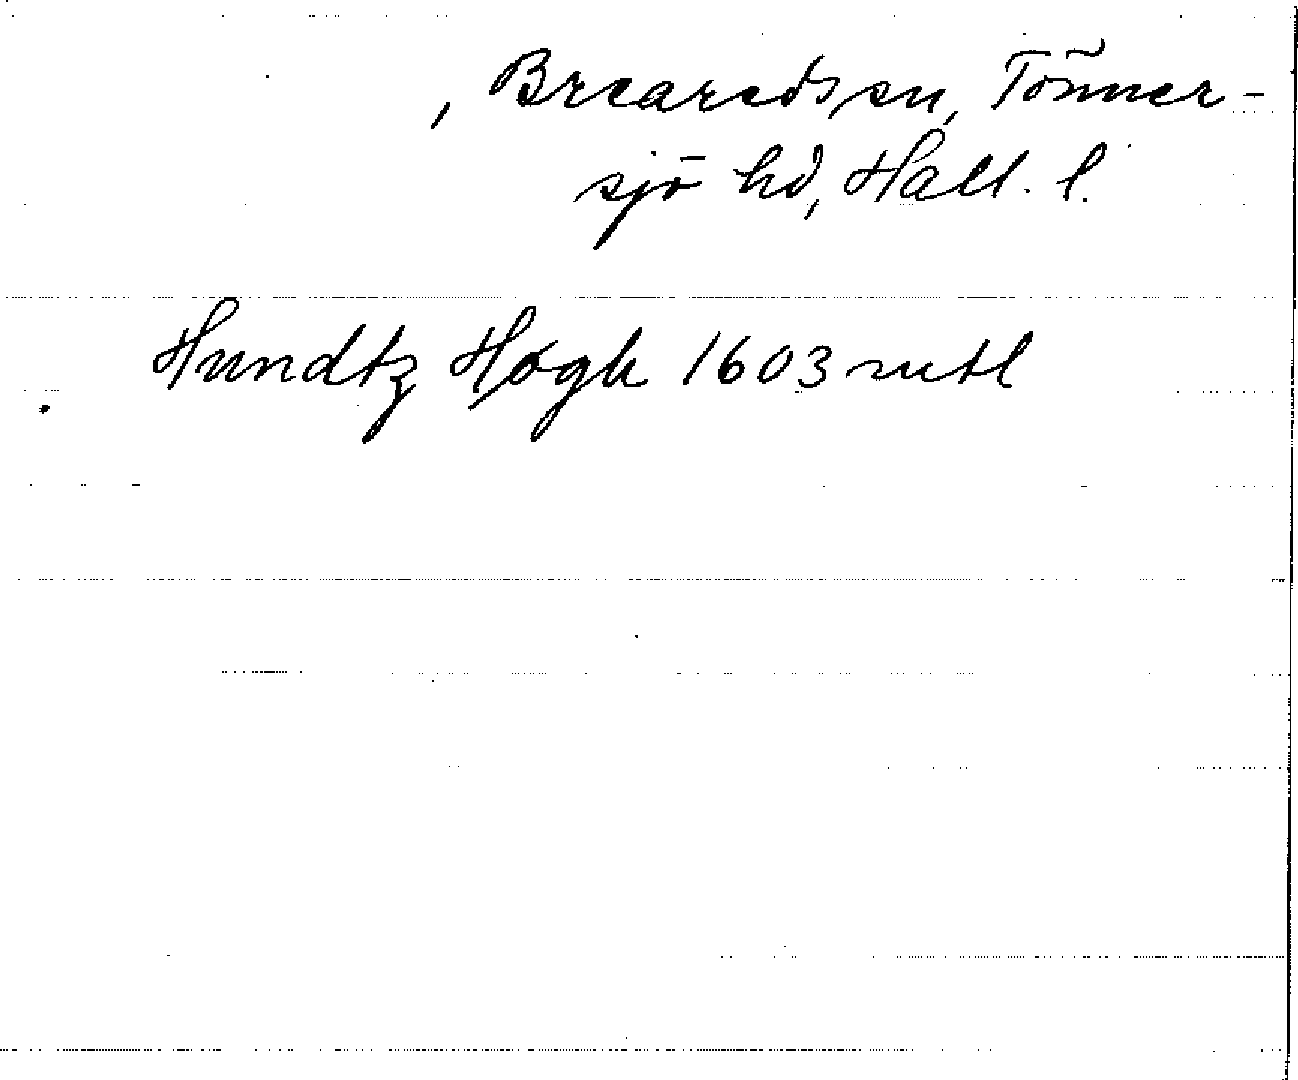 , Breareds sn, Tönner-
sjö hd, Hall. l.
Hundtz Høgh 1603 rutl